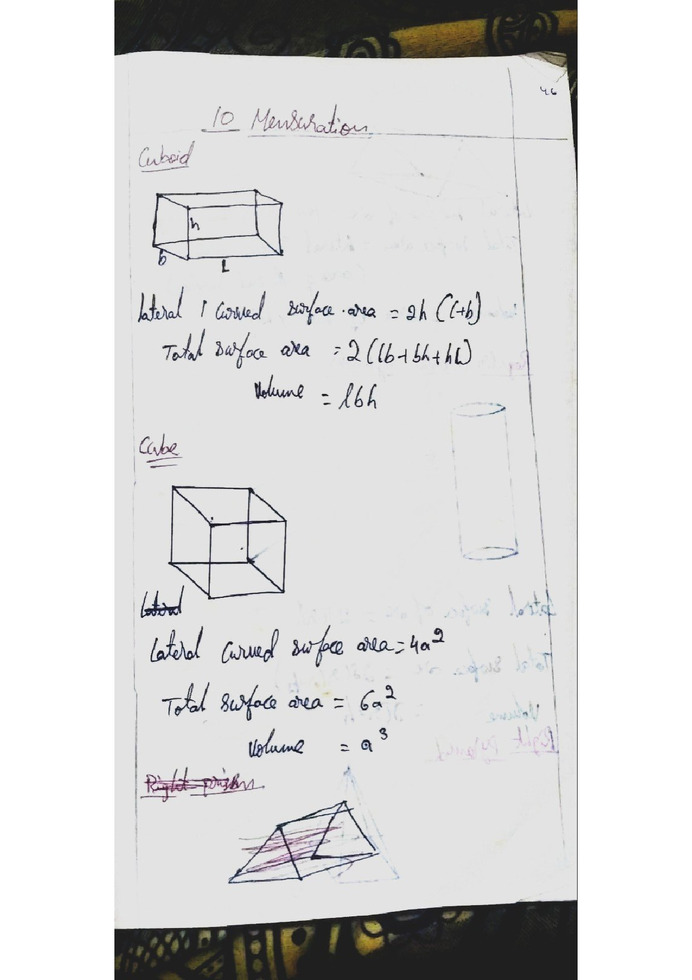 46
10 Mensuration
Cuboid
h
b
L
Lateral / Curved surface area = 2h (l+b)
Total surface area = 2(lb+bh+hl)
Volume = lbh
Cube
Lateral
Lateral Curved surface area = 4a²
Total surface area = 6a²
Volume = a³
Right prism